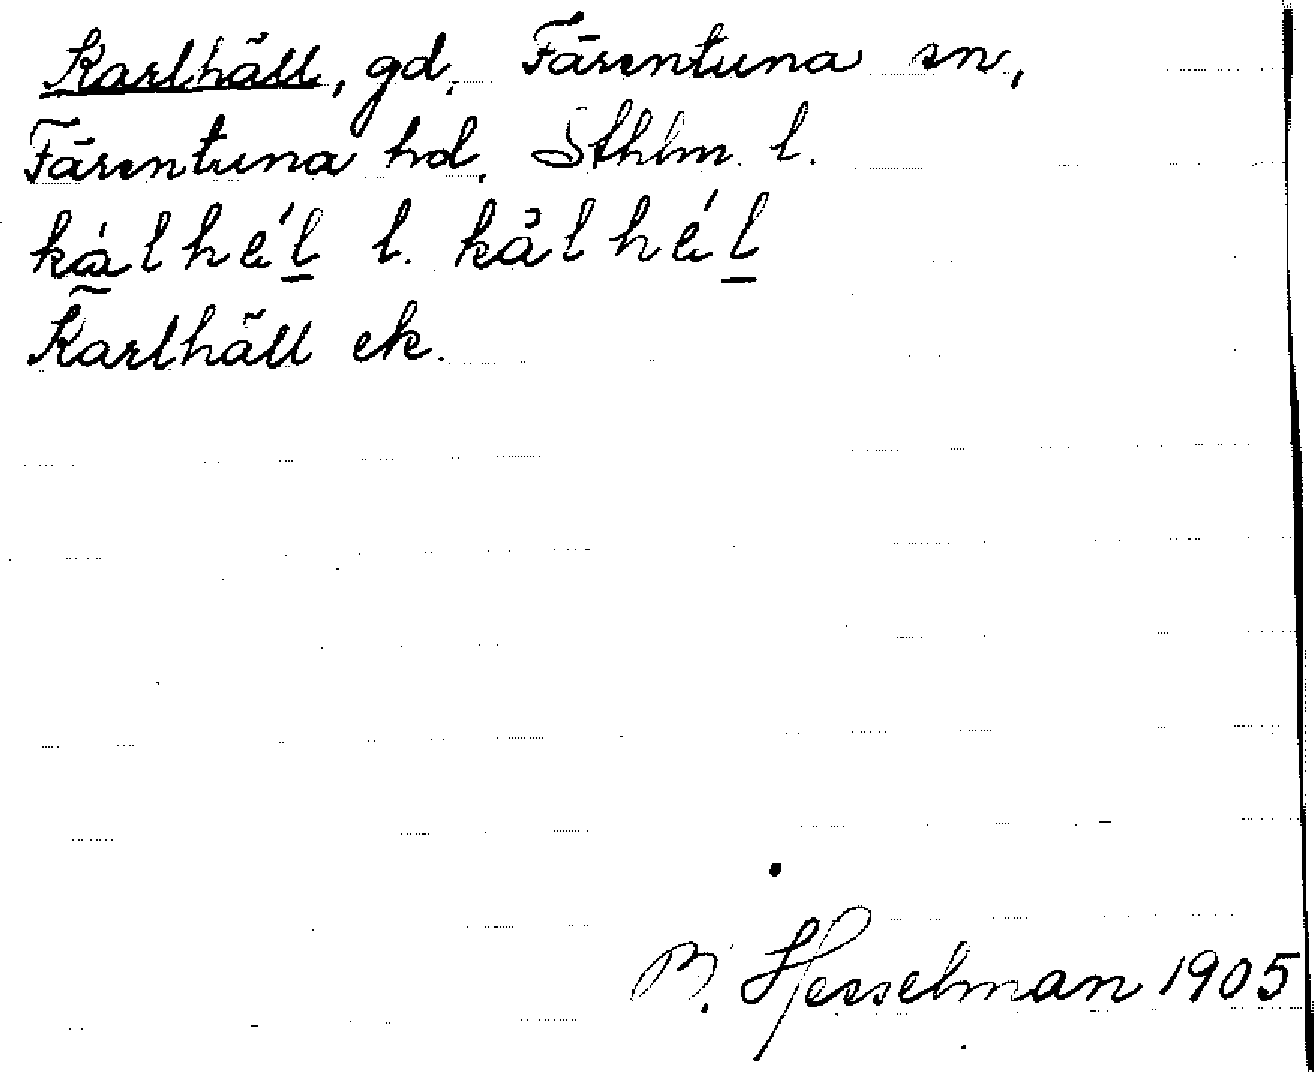 Karlhäll, gd, Färentuna sn,
Färentuna hd, Sthlm. l.
kàlhél l. kålhél
Karlhäll ek.
B. Hesselman 1905